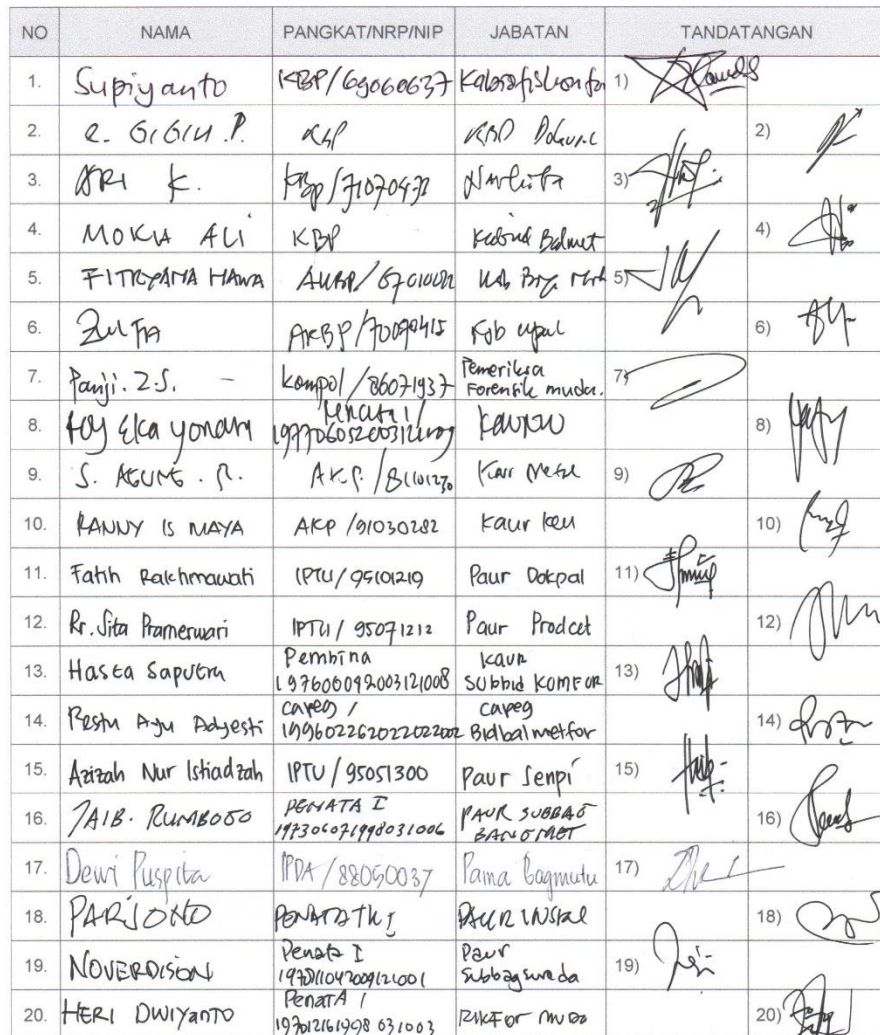 NO NAMA PANGKAT/NRP/NIP JABATAN TANDATANGAN
1. Supiyanto KBP/69060637 1)
2. R. GIGIH .P. KBP KBD 2)
3. ARI K. KBP/71070472 3)
4. MOKH ALI KBP Kabid Balmet 4)
5. FITRYANA HAWA AKBP/ 5)
6. ZULFA AKBP/70090415 Ksb upal 6)
7. Panji. Z.S. - Kompol/86071937 Pemeriksa
Forensik muda. 7)
8. Eka Penata I/
8)
9. S. AGUNG . R. A.K.P. /81101230 Kaur 9)
10. RANNY IS MAYA AKP /91030282 Kaur Keu 10)
11. Fatih Rakhmawati IPTU/95101219 Paur Dokpal 11)
12. Rr. Sita Pramerwari IPTU/ 95071212 Paur Prodcet 12)
13. Hasta Saputra Pembina
KAUR
SUBBID KOMFOR 13)
14. Restu Ayu Adyesti capeg /
199602262022022002 capeg
Bidbalmetfor 14)
15. Azizah Nur Istiadzah IPTU/95051300 Paur Senpi 15)
16. PENATA I
197306071998031006 PAUR SUBBAG
16)
17. Dewi Puspita IPDA/88050037 Pama Bagmutu 17)
18. PARJONO PENATA TK I PAUR 18)
19. NOVERDISON Penata I
Paur
Subbagsumda 19)
20. HERI DWIYANTO PenatA I
197012161998 031003 RIKFOR MUDA 20)